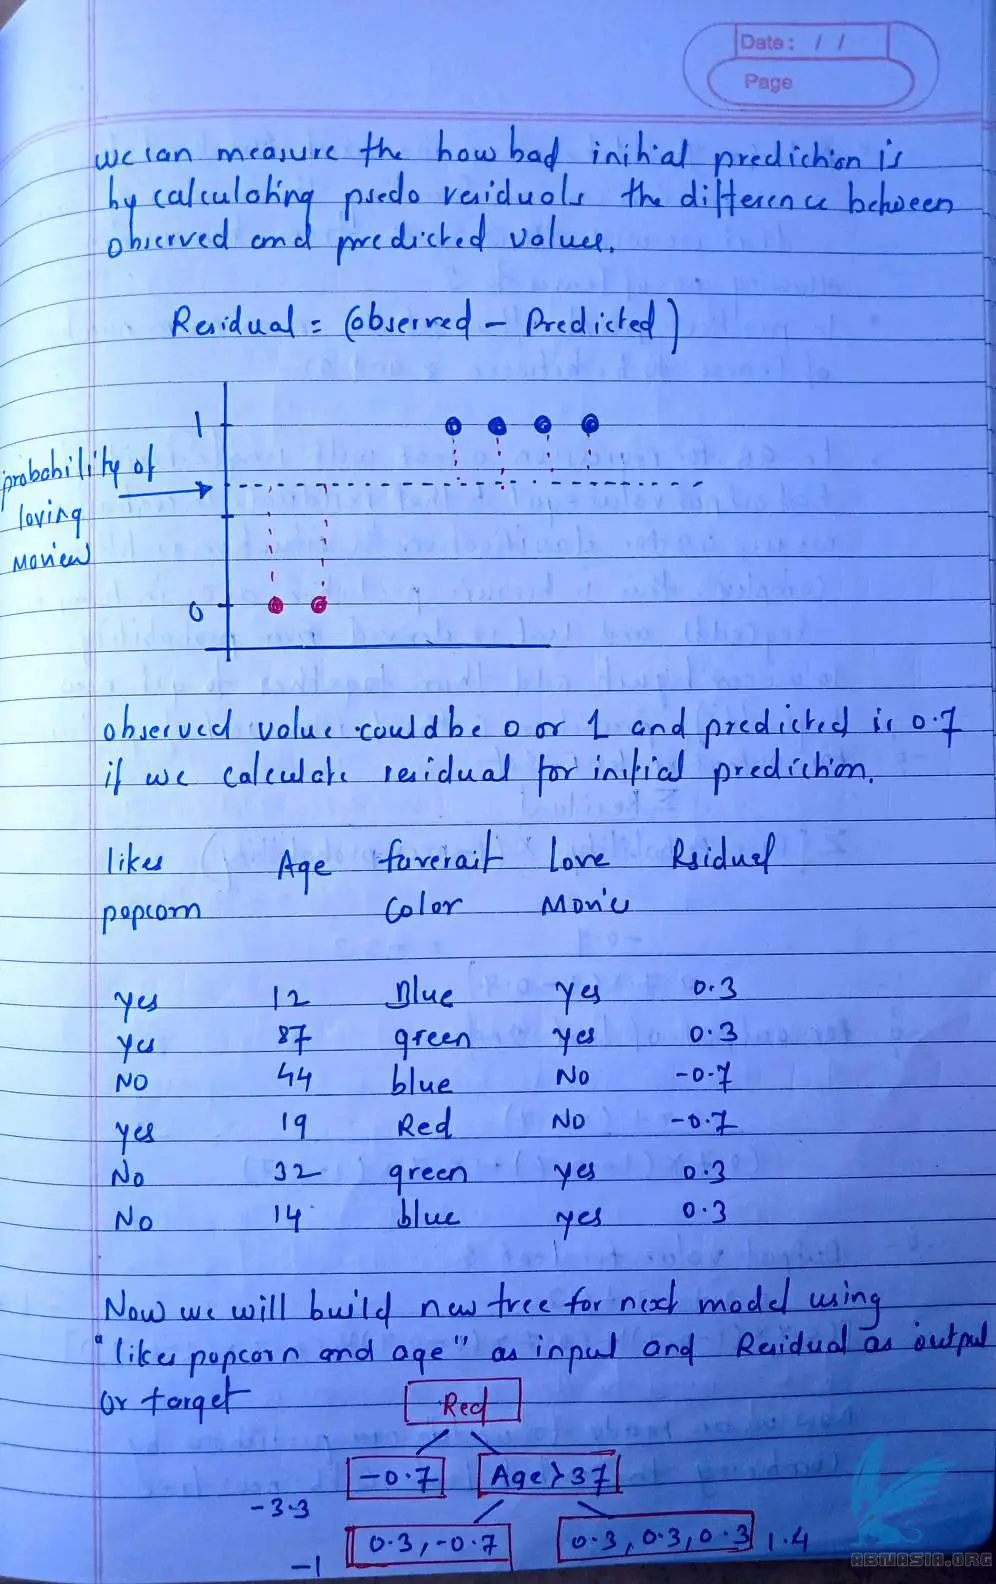 Date: / /
Page
we can measure the how bad initial prediction is
by calculating psedo residuals the difference between
observed and predicted values.
Residual = (observed - Predicted)
1
probability of
loving
movies
0
observed value could be 0 or 1 and predicted is 0.7
if we calculate residual for initial prediction.
likes Age faverait Love Rsidual
popcorn Color Movie
yes 12 Blue yes 0.3
yes 87 green yes 0.3
NO 44 blue No -0.7
yes 19 Red No -0.7
No 32 green yes 0.3
No 14 blue yes 0.3
Now we will build new tree for next model using
"likes popcorn and age" as input and Residual as output
or target
Red
-0.7 Age > 37
-3.3
0.3, -0.7 0.3, 0.3, 0.3 1.4
-1
ABNASIA.ORG